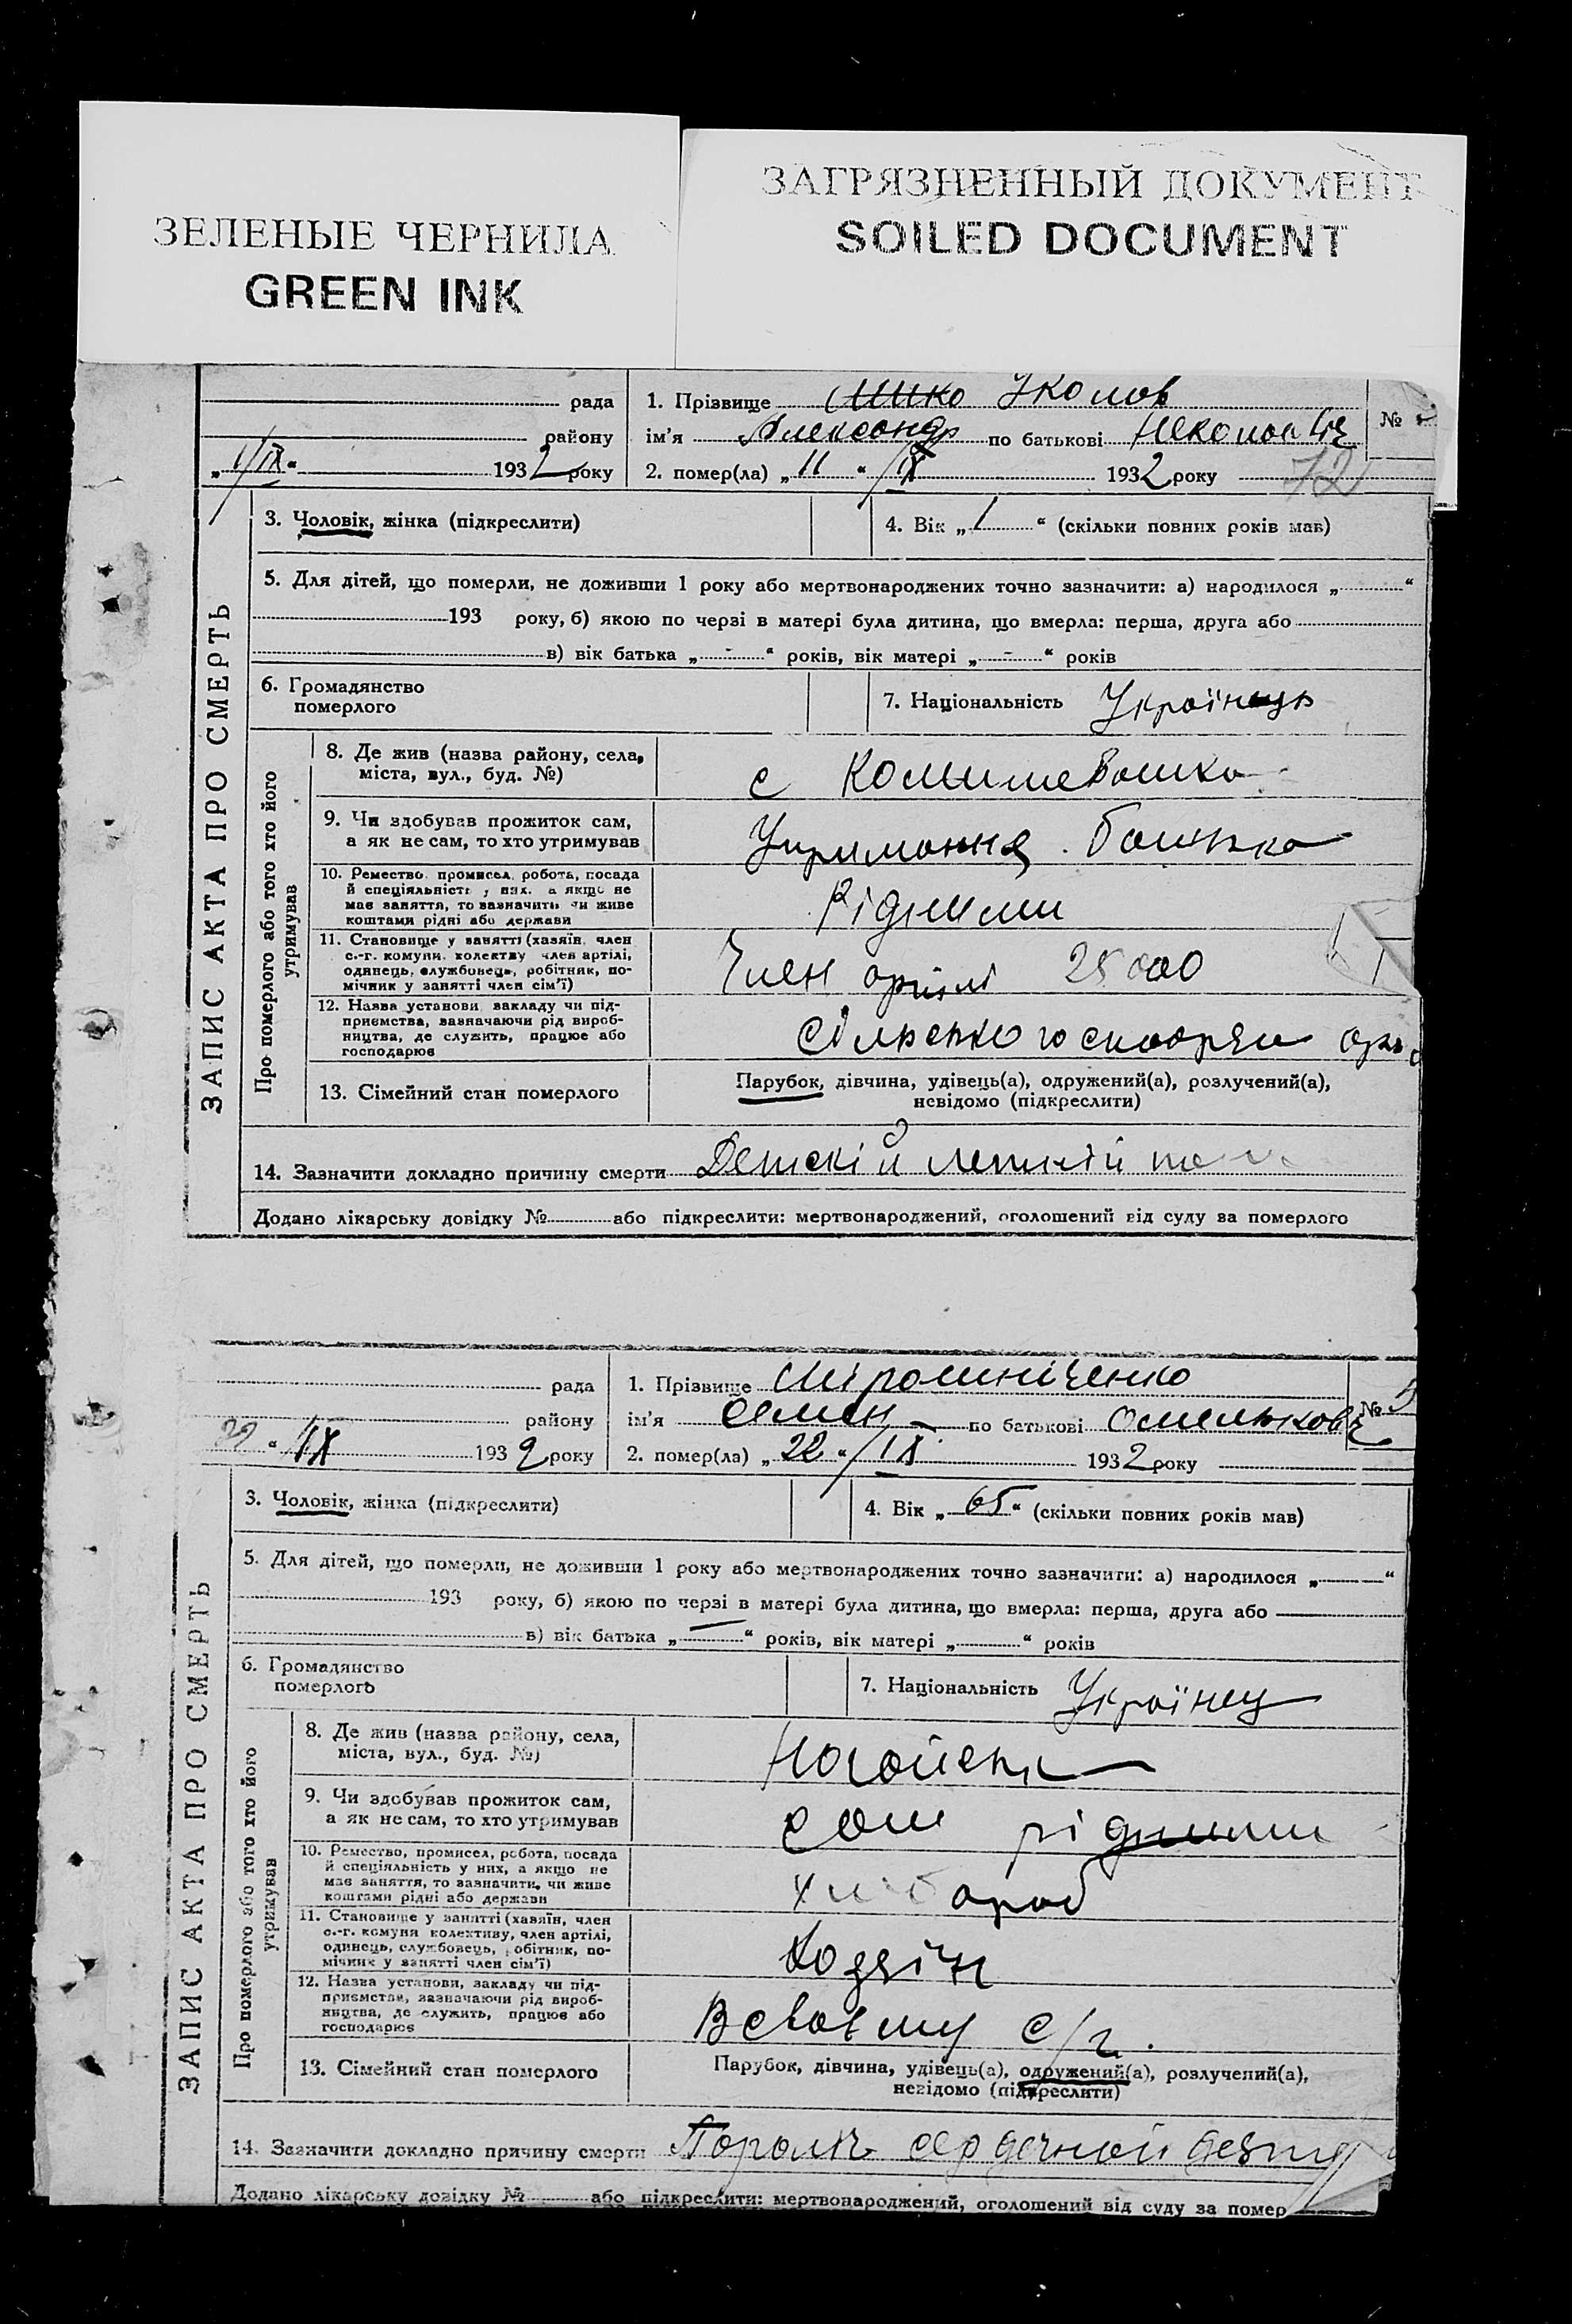 ЗЕЛЕНЫЕ ЧЕРНИЛА
GREEN INK
ЗАГРЯЗНЕННЫЙ ДОКУМЕНТ
SOILED DOCUMENT
ЗАПИС АКТА ПРО СМЕРТЬ
рада
району
193 2 року
1. Прізвище Уколов
№
ім'я Александр по батькові
2. помер(ла) „ 11 “ /IX 1932 року
72
3. Чоловік, жінка (підкреслити)
4. Вік „ 1 “ (скільки повних років мав)
5. Для дітей, що померли, не доживши 1 року або мертвонароджених точно зазначити: а) народилося „ “
193 року, б) якою по черзі в матері була дитина, що вмерла: перша, друга або
в) вік батька „ - “ років, вік матері „ - “ років
6. Громадянство
померлого
7. Національність Українець
Про померлого або того хто його
утримував
8. Де жив (назва району, села,
міста, вул., буд. №)
с Комишевашка
9. Чи здобував прожиток сам,
а як не сам, то хто утримував
Утримання батька
10. Ремество, промисел, робота, посада
й спеціяльність у них, а якщо не
має заняття, то зазначити чи живе
коштами рідні або держави
Рідними
11. Становище у занятті (хазяїн, член
с.-г. комуни, колективу, член артілі,
одинець, службовець, робітник, по-
мічник у занятті член сім'ї)
Член артілі 25000
12. Назва установи, закладу чи під-
приємства, зазначаючи рід вироб-
ництва, де служить, працює або
господарює
13. Сімейний стан померлого
Парубок, дівчина, удівець(а), одружений(а), розлучений(а),
невідомо (підкреслити)
14. Зазначити докладно причину смерти Детскій летний
Додано лікарську довідку № або підкреслити: мертвонароджений, оголошений від суду за померлого
ЗАПИС АКТА ПРО СМЕРТЬ
рада
району
22 “ /IX 193 2 року
1. Прізвище Мірошніченко
№ 5
ім'я Семен по батькові Омелькович
2. помер(ла) „ 22 “ /IX 1932 року
3. Чоловік, жінка (підкреслити)
4. Вік „ 65 “ (скільки повних років мав)
5. Для дітей, що померли, не доживши 1 року або мертвонароджених точно зазначити: а) народилося „ “
193 року, б) якою по черзі в матері була дитина, що вмерла: перша, друга або
в) вік батька „ “ років, вік матері „ “ років
6. Громадянство
померлого
7. Національність Українец
Про померлого або того хто його
утримував
8. Де жив (назва району, села,
міста, вул., буд. №)
Ногайськ
9. Чи здобував прожиток сам,
а як не сам, то хто утримував
Сам рідними
10. Ремество, промисел, робота, посада
й спеціяльність у них, а якщо не
має заняття, то зазначити, чи живе
коштами рідні або держави
Хлібороб
11. Становище у занятті (хазяїн, член
с.-г. комуни колективу, член артілі,
одинець, службовець, робітник, по-
мічник у занятті член сім'ї)
Хозяін
12. Назва установи, закладу чи під-
приємства, зазначаючи рід вироб-
ництва, де служить, працює або
господарює
В своєму с/г.
13. Сімейний стан померлого
Парубок, дівчина, удівець(а), одружений(а), розлучений(а),
невідомо (підкреслити)
14. Зазначити докладно причину смерти Параліч сердечной
Додано лікарську довідку № або підкреслити: мертвонароджений, оголошений від суду за помер